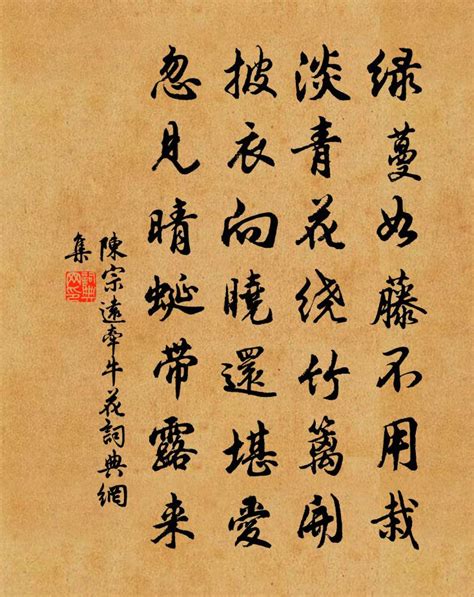 绿蔓如藤不用栽
淡青花绕竹篱開
披衣向曉還堪愛
忽見晴蜓帶露来
陳宗遠牽牛花詞典網
集